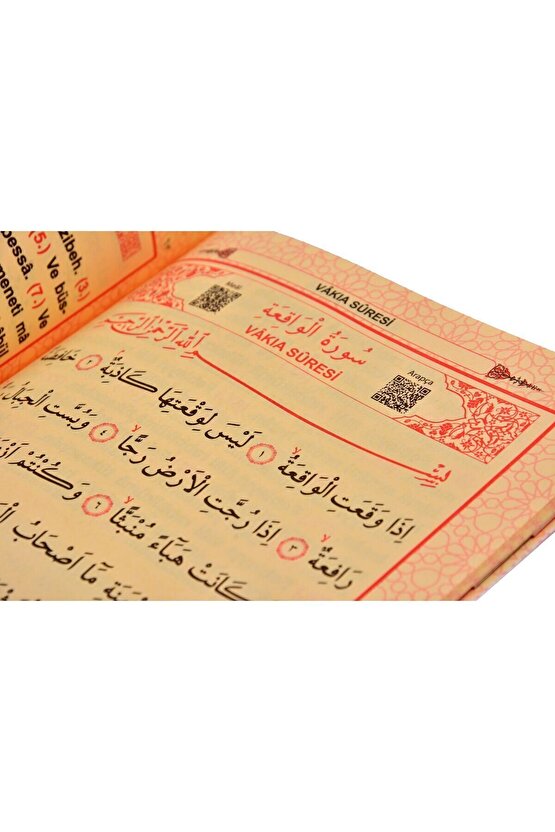 zibeh. (3.)
bessâ. (5.) Ve büs-
meneti mâ (7.) Ve
VÂKIA SÛRESİ
سُورَةُ الْوَاقِعَةِ
VÂKIA SÛRESİ
Meâl
Arapça
بِسْمِ اللّٰهِ الرَّحْمٰنِ الرَّحٖيمِ
اِذَا وَقَعَتِ الْوَاقِعَةُۙ ١ لَيْسَ لِوَقْعَتِهَا كَاذِبَةٌۢ ٢
رَافِعَةٌۙ ٣ اِذَا رُجَّتِ الْاَرْضُ رَجًّاۙ ٤ وَبُسَّتِ الْجِبَالُ
كَانَتْ هَبَٓاءً مُنْبَثًّاۙ ٦ وَكُنْتُمْ
مَٓا اَصْحَابُ